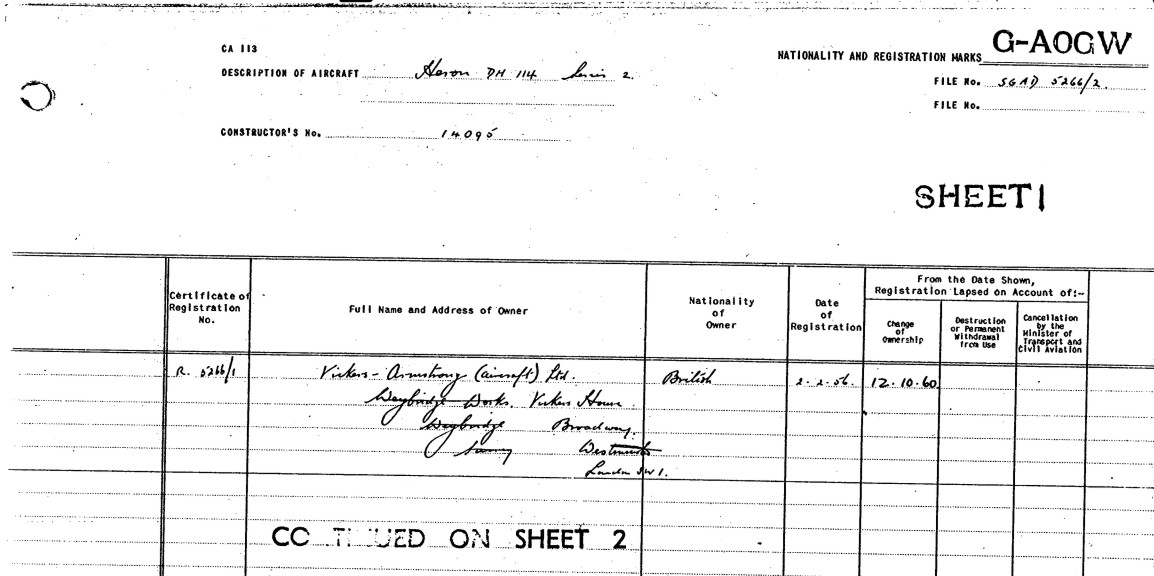 CA 113
NATIONALITY AND REGISTRATION MARKS G-AOGW
DESCRIPTION OF AIRCRAFT Heron DH 114 Series 2.
FILE No. SGAD 5266/2.
FILE No.
CONSTRUCTOR'S No. 14095
SHEET 1
Certificate of
Registration
No.
Full Name and Address of Owner
Nationality
of
Owner
Date
of
Registration
From the Date Shown,
Registration Lapsed on Account of:-
Change
of
Ownership
Destruction
or Permanent
Withdrawal
from Use
Cancellation
by the
Minister of
Transport and
Civil Aviation
R. 5266/1 Vickers-Armstrong (aircraft) Ltd. British 2.2.56. 12.10.60
Weybridge Works. Vickers House
Weybridge Broadway.
Surrey Westminster
London SW1.
CO TI UED ON SHEET 2